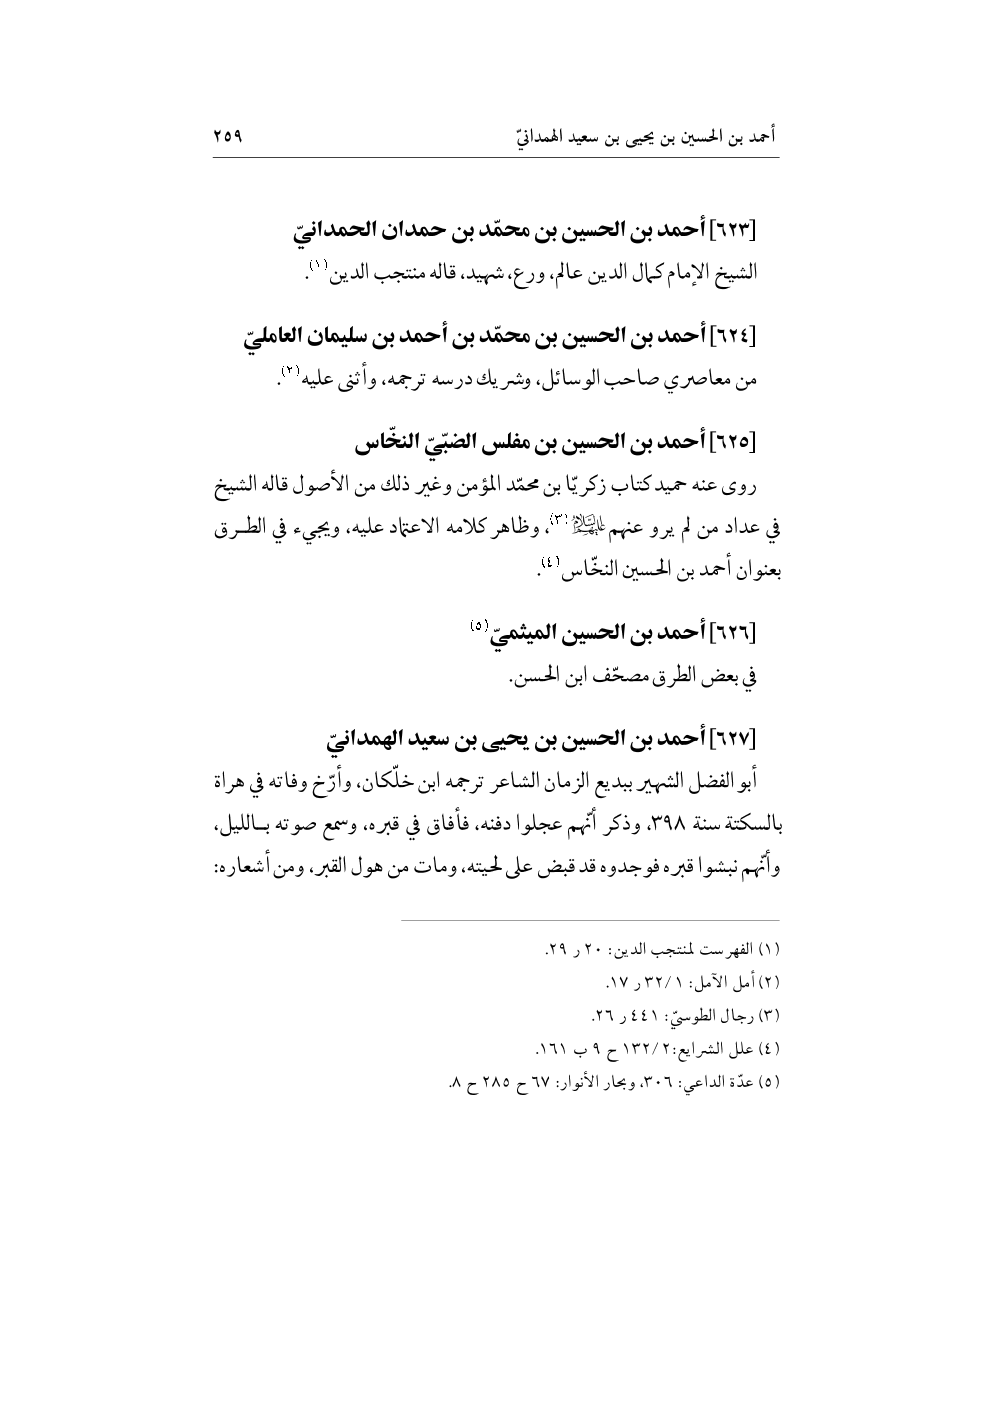 أحمد بن الحسين بن يحيى بن سعيد الهمدانيّ ٢٥٩
[٦٢٣] أحمد بن الحسين بن محمّد بن حمدان الحمدانيّ
الشيخ الإمام كمال الدين عالم، ورع، شهيد، قاله منتجب الدين(١).
[٦٢٤] أحمد بن الحسين بن محمّد بن أحمد بن سليمان العامليّ
من معاصري صاحب الوسائل، وشريك درسه ترجمه، وأثنى عليه(٢).
[٦٢٥] أحمد بن الحسين بن مفلس الضبّيّ النخّاس
روى عنه حميد كتاب زكريّا بن محمّد المؤمن وغير ذلك من الأصول قاله الشيخ
في عداد من لم يرو عنهم عليهم السلام(٣)، وظاهر كلامه الاعتماد عليه، ويجيء في الطـرق
بعنوان أحمد بن الحسين النخّاس(٤).
[٦٢٦] أحمد بن الحسين الميثميّ(٥)
في بعض الطرق مصحّف ابن الحسن.
[٦٢٧] أحمد بن الحسين بن يحيى بن سعيد الهمدانيّ
أبو الفضل الشهير ببديع الزمان الشاعر ترجمه ابن خلّكان، وأرّخ وفاته في هراة
بالسكتة سنة ٣٩٨، وذكر أنّهم عجلوا دفنه، فأفاق في قبره، وسمع صوته بـالليل،
وأنّهم نبشوا قبره فوجدوه قد قبض على لحيته، ومات من هول القبر، ومن أشعاره:
(١) الفهرست لمنتجب الدين: ٢٠ ر ٢٩.
(٢) أمل الآمل: ١ /٣٢ ر ١٧.
(٣) رجال الطوسيّ: ٤٤١ ر ٢٦.
(٤) علل الشرايع: ٢ /١٣٢ ح ٩ ب ١٦١.
(٥) عدّة الداعي: ٣٠٦، وبحار الأنوار: ٦٧ ح ٢٨٥ ح ٨.